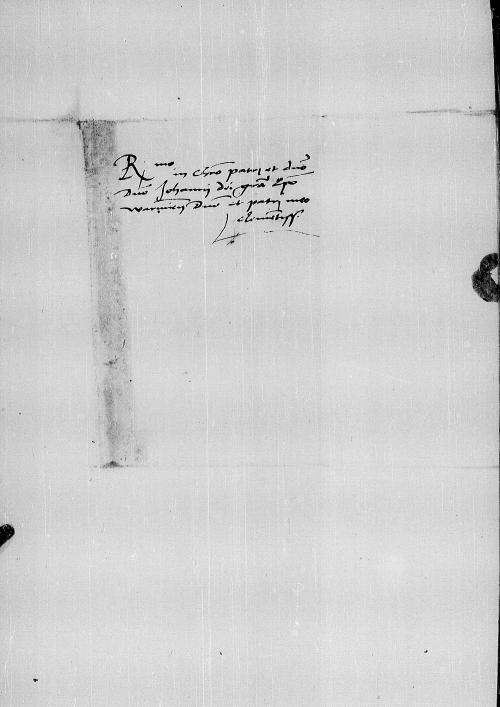 Rmo in Chro patri et dno
Dno Johanni Dei gra Epo
Warmien Dno et patri meo
clementiss.